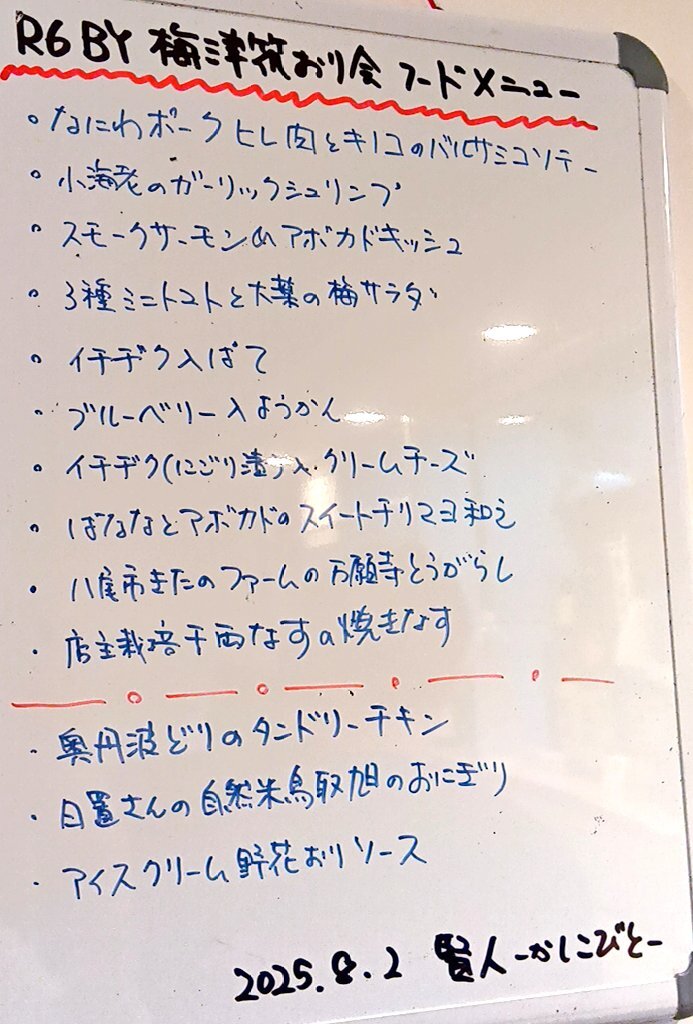 R6BY 梅津笊おり会 フードメニュー
・なにわポークヒレ肉とキノコのバルサミコソテー
・小海老のガーリックシュリンプ
・スモークサーモンのアボカドキッシュ
・3種ミニトマトと大葉の梅サラダ
・イチヂク入ばて
・ブルーベリー入ようかん
・イチヂク(にごり漬)入クリームチーズ
・ばななとアボカドのスイートチリマヨ和え
・八尾市きたのファームの万願寺とうがらし
・店主栽培千両なすの焼きなす
・奥丹波どりのタンドリーチキン
・日置さんの自然米鳥取旭のおにぎり
・アイスクリーム野花おりソース
2025.8.2 賢人-かしこびと-